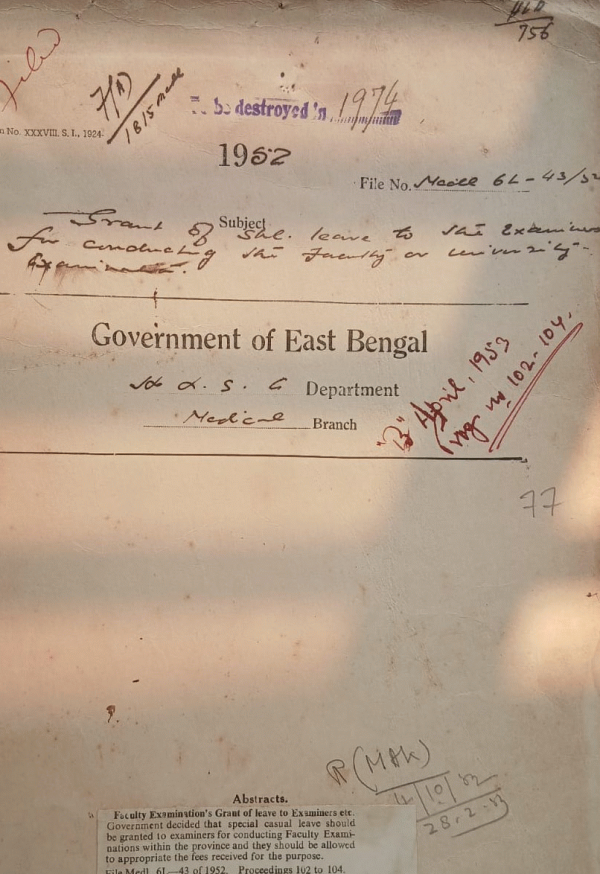 Filed
756
7(A)
1815 medl
To be destroyed in 1974
n No. XXXVIII. S. I., 1924.
1952
File No. Medl 6L-43/52
Subject
Grant of Spl. leave to the Examiners
for conducting the Faculty or University
Examination.
Government of East Bengal
H & L. S. G Department
Medical Branch
"B" April, 1953
no 102-104.
77
(MAK)
28.2.53
Abstracts.
Faculty Examination's Grant of leave to Examiners etc.
Government decided that special casual leave should
be granted to examiners for conducting Faculty Exami-
nations within the province and they should be allowed
to appropriate the fees received for the purpose.
File Medl. 6L—43 of 1952. Proceedings 102 to 104.